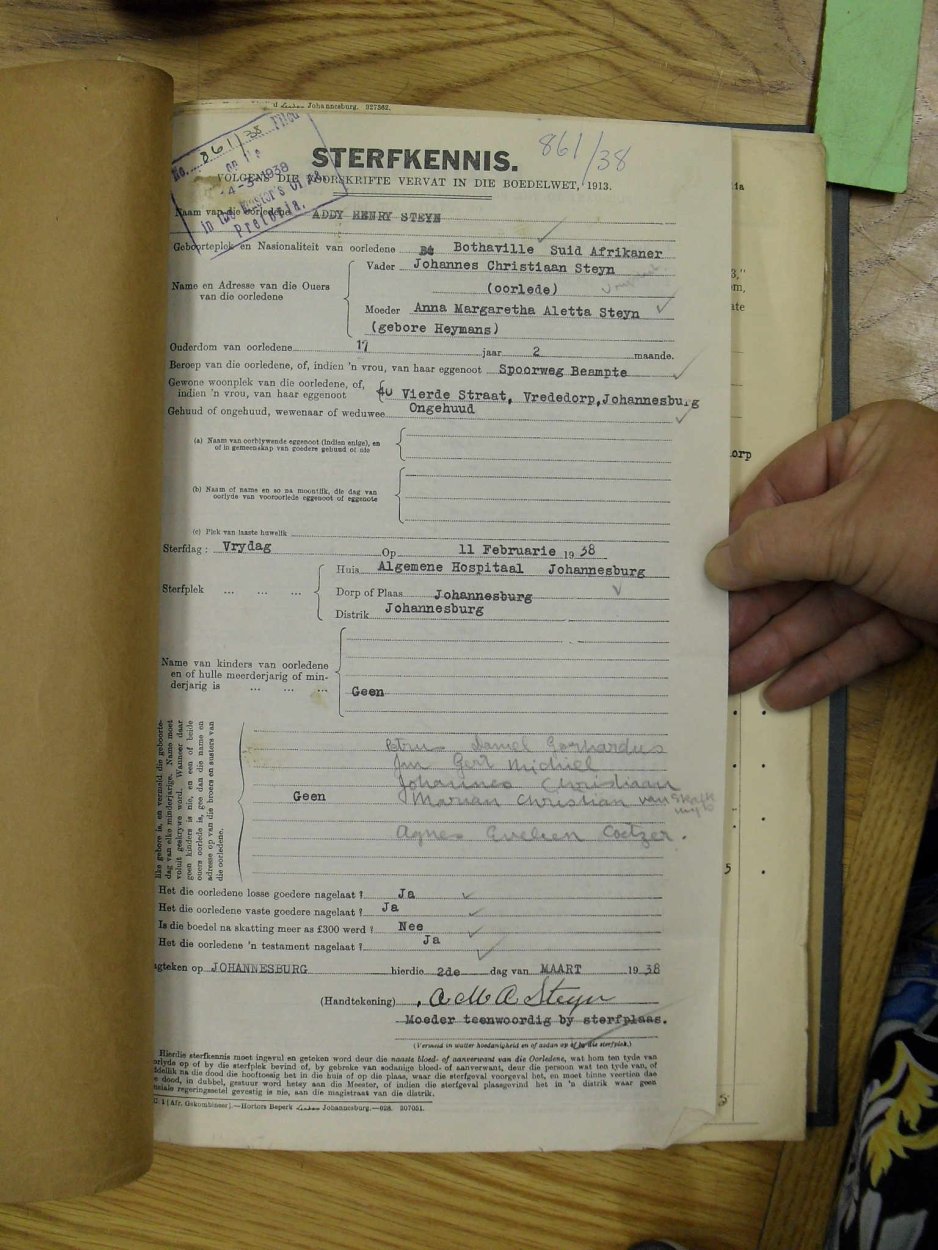 Johannesburg. 327362.
No. 861/38 Filed
4-3-1938
In the Master's Office
Pretoria.
861/38
STERFKENNIS.
VOLGENS DIE VOORSKRIFTE VERVAT IN DIE BOEDELWET, 1913.
Naam van die oorledene ADDY HENRY STEYN
Geboorteplek en Nasionaliteit van oorledene Bothaville Suid Afrikaner
Name en Adresse van die Ouers van die oorledene
Vader Johannes Christiaan Steyn
(oorlede)
Moeder Anna Margaretha Aletta Steyn
(gebore Heymans)
Ouderdom van oorledene 17 jaar 2 maande.
Beroep van die oorledene, of, indien 'n vrou, van haar eggenoot Spoorweg Beampte
Gewone woonplek van die oorledene, of,
indien 'n vrou, van haar eggenoot Vierde Straat, Vrededorp, Johannesburg
Gehuud of ongehuud, wewenaar of weduwee Ongehuud
(a) Naam van oorblywende eggenoot (indien enige), en
of in gemeenskap van goedere gehuud of nie
(b) Naam of name en so na moontlik, die dag van
oorlyde van vooroorlede eggenoot of eggenote
(c) Plek van laaste huwelik
Sterfdag: Vrydag Op 11 Februarie 1938
Sterfplek ... ... ...
Huis Algemene Hospitaal Johannesburg
Dorp of Plaas Johannesburg
Distrik Johannesburg
Name van kinders van oorledene
en of hulle meerderjarig of min-
derjarig is ... ... ...
Geen
like gebore is, en vermeld die geboorte-
dag van elke minderjarige. Name moet
voluit geskrywe word. Wanneer daar
geen kinders is nie, en een of beide
ouers oorlede is, gee dan die name en
adresse op van die broers en susters van
die oorledene.
Geen
Daniel Gerhardus
Gert Michiel
Johannes Christiaan
Christian van
Agnes Coetzer.
Het die oorledene losse goedere nagelaat? Ja
Het die oorledene vaste goedere nagelaat? Ja
Is die boedel na skatting meer as £300 werd? Nee
Het die oorledene 'n testament nagelaat? Ja
gteken op JOHANNESBURG hierdie 2de dag van MAART 1938
(Handtekening) A M A Steyn
Moeder teenwoordig by sterfplaas.
(Vermeld in watter hoedanigheid en of aodan op of by die sterfplek.)
Hierdie sterfkennis moet ingevul en geteken word deur die naaste bloed- of aanverwant van die Oorledene, wat hom ten tyde van
orlyde op of by die sterfplek bevind of, by gebreke van sodanige bloed- of aanverwant, deur die persoon wat ten tyde van, of
ddellik na die dood die hooftoesig het in die huis of op die plaas, waar die sterfgeval voorgeval het, en moet binne veertien dae
e dood, in dubbel, gestuur word hetsy aan die Meester, of indien die sterfgeval plaasgevind het in 'n distrik waar geen
nsiale regeringsetel gevestig is nie, aan die magistraat van die distrik.
1 (Afr. Gekombineer).—Hortors Beperk Johannesburg.—928. 307051.
orp